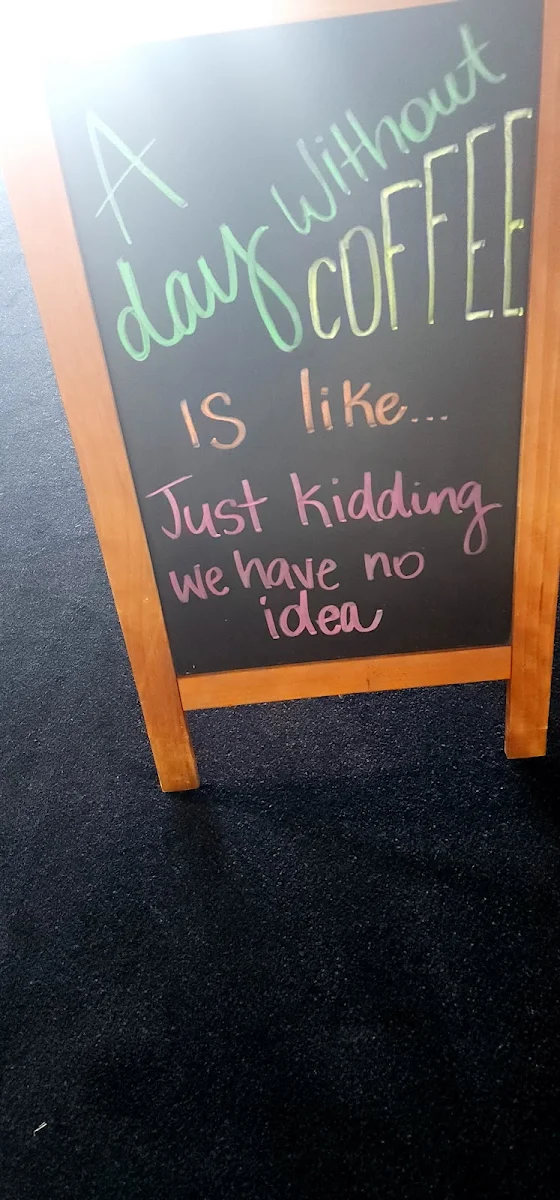 A
day Without
COFFEE
IS like...
Just kidding
we have no
idea